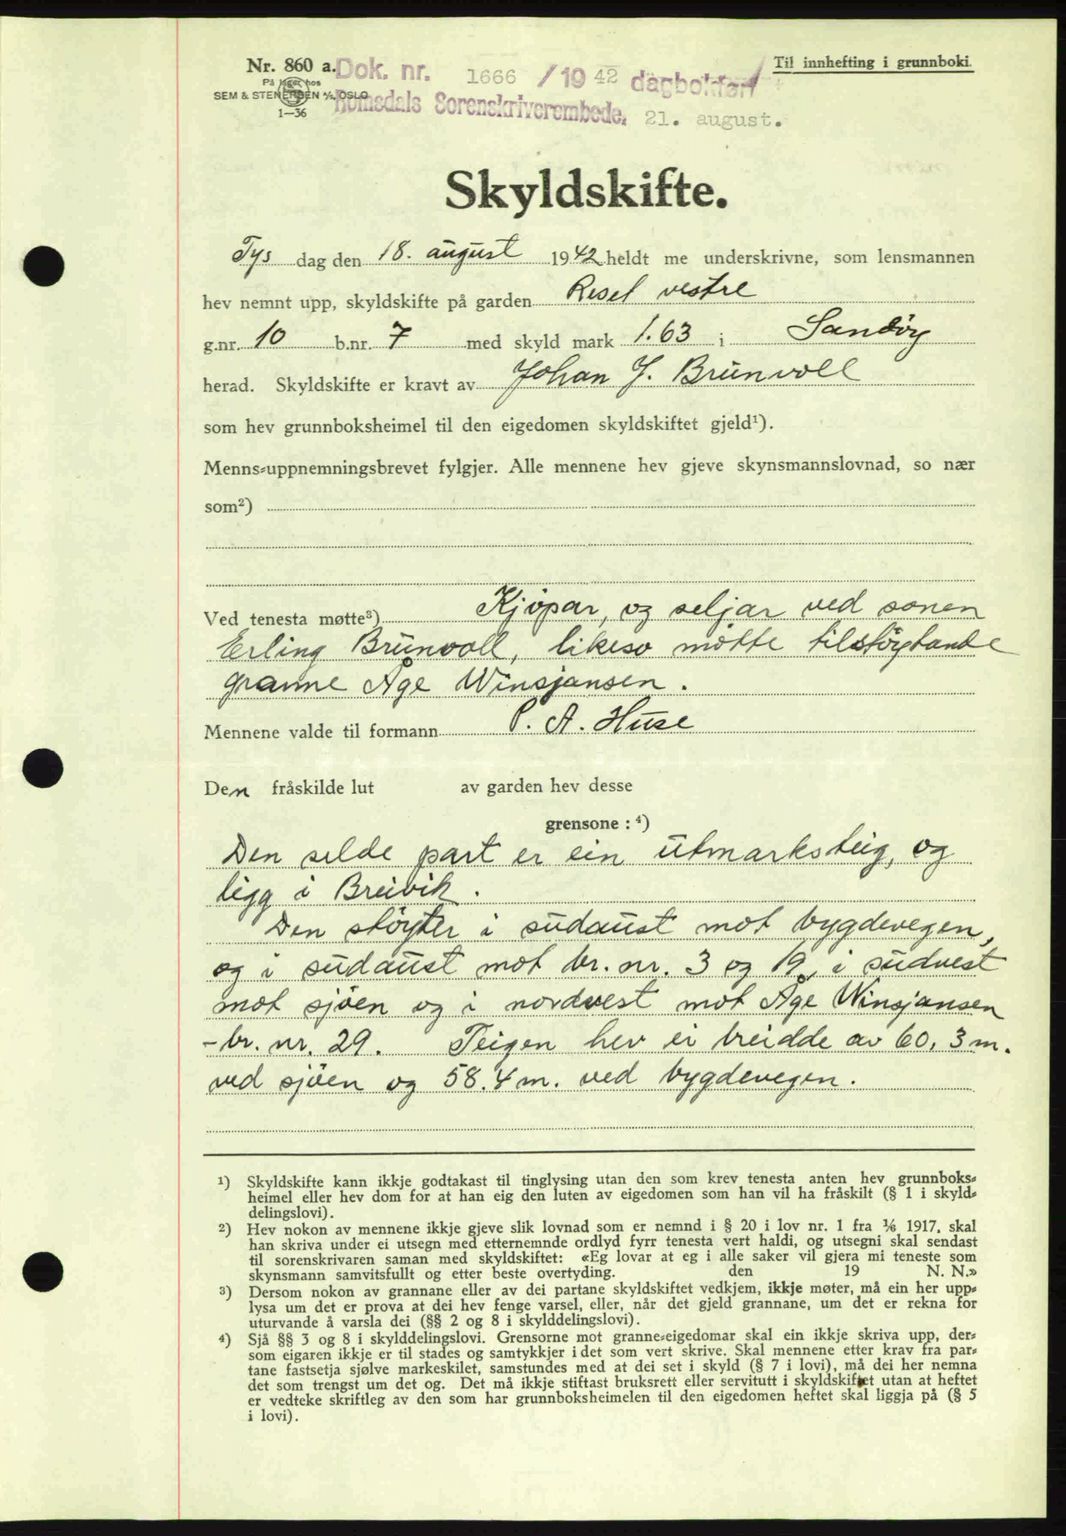 Nr. 860 a.
På lager hos
SEM & STENERSEN A/S, OSLO
1—36
Dok. nr. 1666 / 1942 dagbokført
Romsdals Sorenskriverembede, 21. august.
Til innhefting i grunnboki.
Skyldskifte.
Tys dag den 18. august 1942 heldt me underskrivne, som lensmannen
hev nemnt upp, skyldskifte på garden Resel vestre
g.nr. 10 b.nr. 7 med skyld mark 1.63 i Sandøy
herad. Skyldskifte er kravt av Johan J. Brunvoll
som hev grunnboksheimel til den eigedomen skyldskiftet gjeld¹).
Menns-uppnemningsbrevet fylgjer. Alle mennene hev gjeve skynsmannslovnad, so nær
som²)
Ved tenesta møtte³) Kjøpar, og seljar ved sonen
Erling Brunvoll, likeso møtte tilstøytande
granne Åge Winsjansen.
Mennene valde til formann P. A. Huse
Den fråskilde lut av garden hev desse
grensone : ⁴)
Den selde part er ein utmarksteig, og
ligg i Breivik.
Den støyter i sudaust mot bygdevegen,
og i sudaust mot br. nr. 3 og 19, i sudvest
mot sjøen og i nordvest mot Åge Winsjansen
- br. nr. 29. Teigen hev ei breidde av 60,3 m.
ved sjøen og 58.4 m. ved bygdevegen.
¹) Skyldskifte kann ikkje godtakast til tinglysing utan den som krev tenesta anten hev grunnboks-
heimel eller hev dom for at han eig den luten av eigedomen som han vil ha fråskilt (§ 1 i skyld-
delingslovi).
²) Hev nokon av mennene ikkje gjeve slik lovnad som er nemnd i § 20 i lov nr. 1 fra ¹/₆ 1917, skal
han skriva under ei utsegn med etternemnde ordlyd fyrr tenesta vert haldi, og utsegni skal sendast
til sorenskrivaren saman med skyldskiftet: «Eg lovar at eg i alle saker vil gjera mi teneste som
skynsmann samvitsfullt og etter beste overtyding. den 19 N. N.»
³) Dersom nokon av grannane eller av dei partane skyldskiftet vedkjem, ikkje møter, må ein her upp-
lysa um det er prova at dei hev fenge varsel, eller, når det gjeld grannane, um det er rekna for
uturvande å varsla dei (§§ 2 og 8 i skylddelingslovi).
⁴) Sjå §§ 3 og 8 i skylddelingslovi. Grensorne mot granne-eigedomar skal ein ikkje skriva upp, der-
som eigaren ikkje er til stades og samtykkjer i det som vert skrive. Skal mennene etter krav fra par-
tane fastsetja sjølve markeskilet, samstundes med at dei set i skyld (§ 7 i lovi), må dei her nemna
det som trengst um det og. Det må ikkje stiftast bruksrett eller servitutt i skyldskiftet utan at heftet
er vedteke skriftleg av den som har grunnboksheimelen til den eigedomen heftet skal liggja på (§ 5
i lovi).